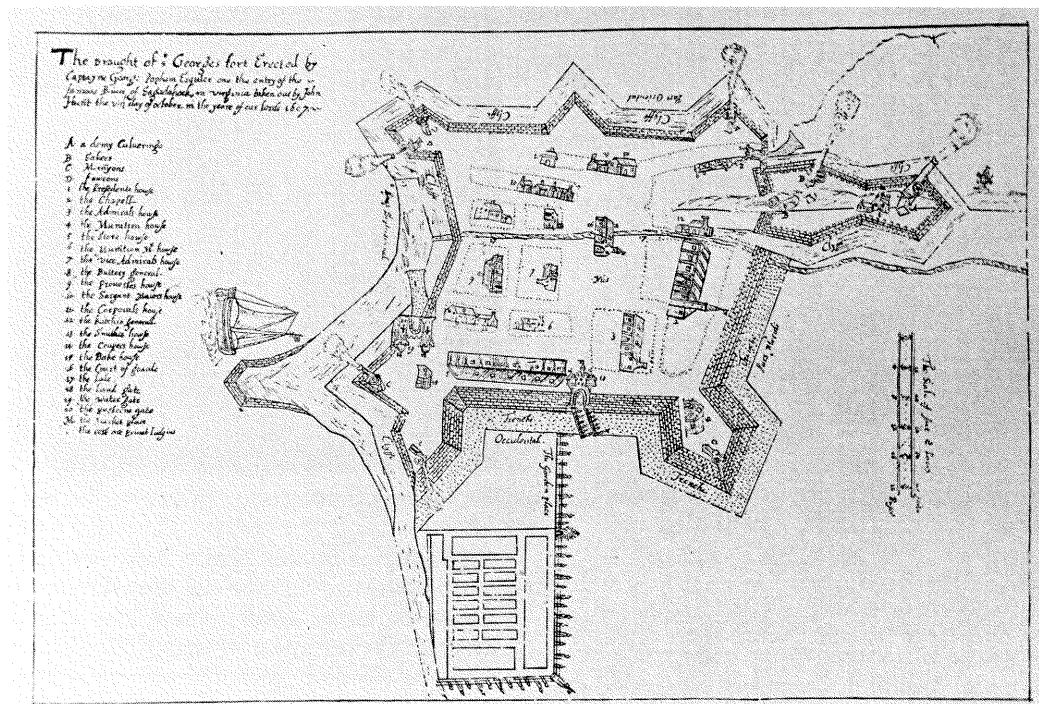 The draught of Sᵗ Georges fort Erected by
Captayne George Popham Esquier one the entry of the
famous River of Sagadahock in virginia taken out by John
Hunt the viij day of october in the yeere of our lorde 1607
A a demy Culverings
B Sakers
C Mynyons
D fawcons
1 the Presedente house
2 the Chapell
3 the Admirals house
4 the Munition house
5 the Store house
6 the Munition Mʳ house
7 the vice Admirals house
8 the Buttery generall
9 the Provostes house
10 the Sargent Maiors house
11 the Corporals house
12 the kitchin generall
13 the Smithes house
14 the Coupers house
15 the Bake house
16 the Court of
17 the
18 the land gate
19 the water gate
20 the posterne gate
the Market place
the rest are privat lodgins
Cliff
Cliff
Oriental
Cliff
Cliff
Cliff
Cliff
Trenche
Trenche
Trenche
Occidental
The Garden place
The Scale of foot &